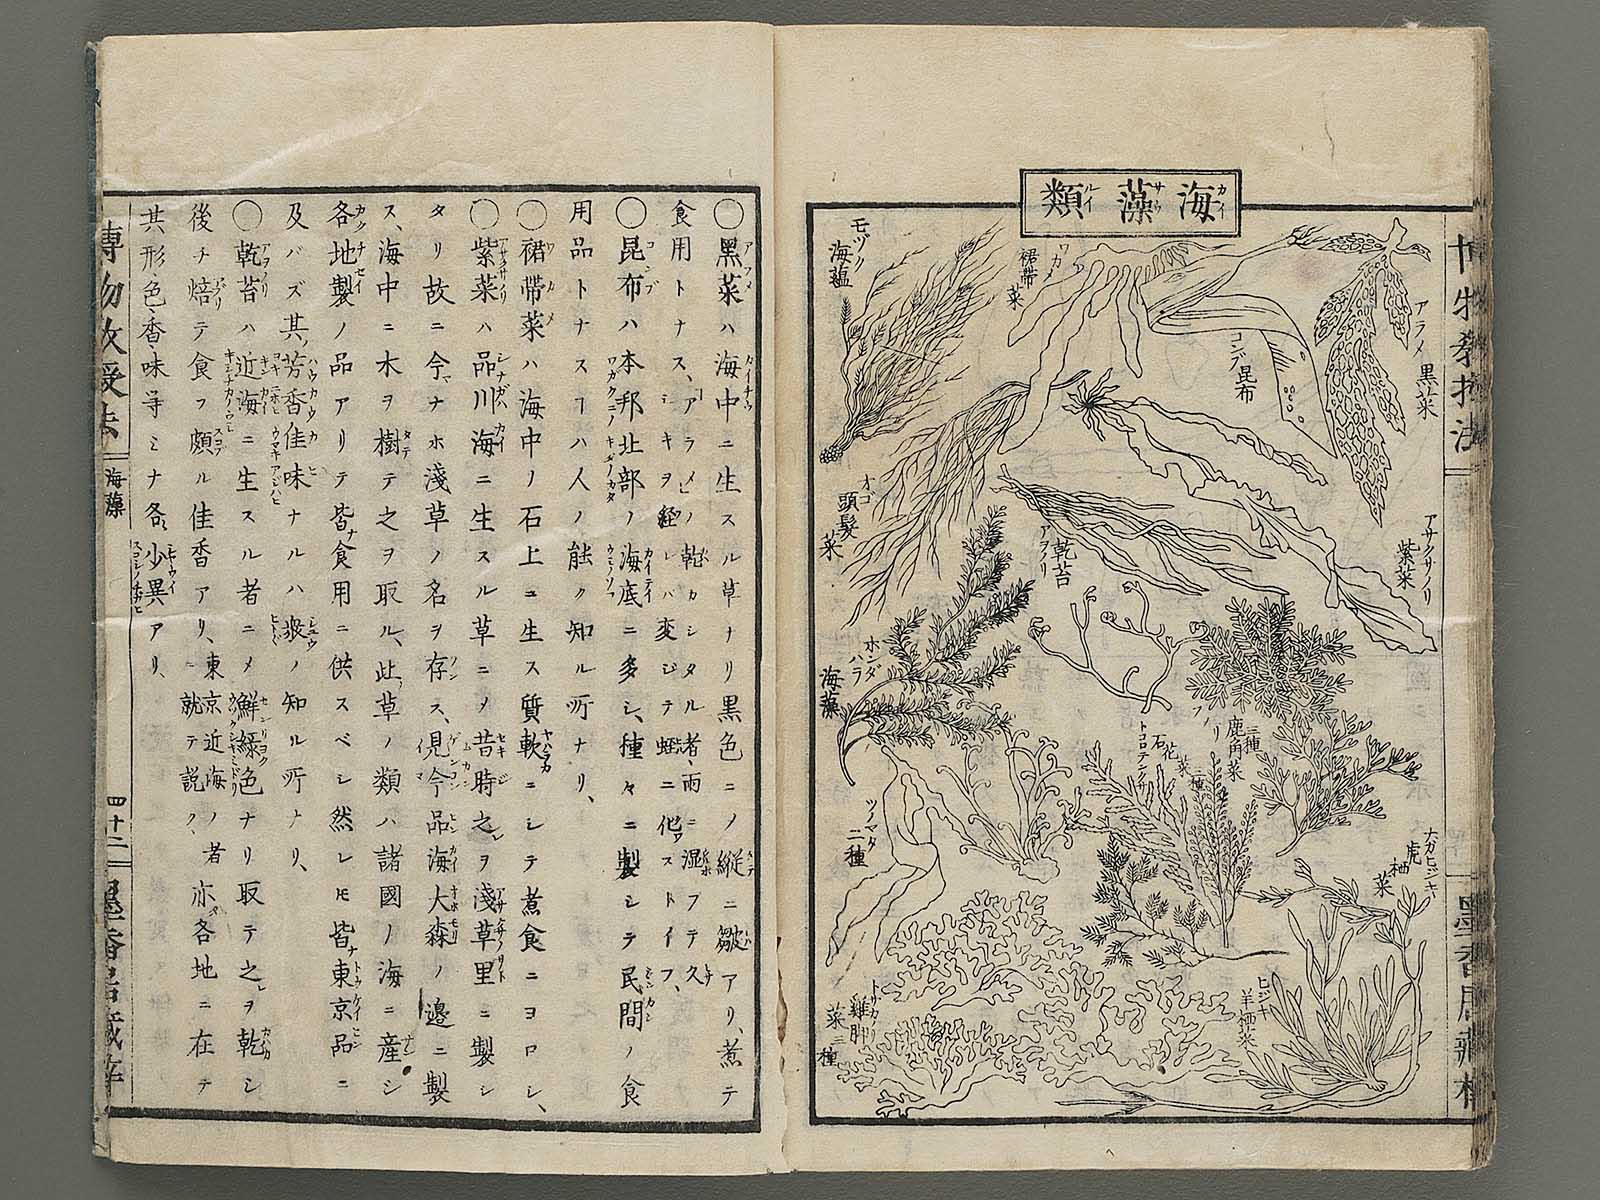 海藻類
カイ サウ ルイ
アラメ 黒菜
コンブ 昆布
ワカメ 裙帶菜
モヅク 海蘊
アサクサノリ 紫菜
アヲノリ 乾苔
オゴ 頭髮菜
ホンダハラ 海藻
フノリ 鹿角菜 三種
トコロテングサ 石花菜 二種
ツノマタ 二種
大ガヒジキ 虎栖菜
ヒジキ 羊栖菜
トサカノリ 雞脚菜 三種
○黑菜ハ海中ニ生スル草ナリ黒色ニノ縱ニ皺アリ、煮テ
食用トナス、アラメノ乾カシタル者、雨ニ湿フテ久
シキヲ經レバ変ジテ蛭ニ化ストイフ、
○昆布ハ本邦北部ノ海底ニ多シ、種々ニ製シテ民間ノ食
用品トナスヿハ人ノ能ク知ル所ナリ、
○裙帶菜ハ海中ノ石上ニ生ス質軟ニシテ煮食ニヨロシ、
○紫菜ハ品川海ニ生スル草ニメ昔時之ヲ淺草里ニ製シ
タリ故ニ今ナホ淺草ノ名ヲ存ス、見今品海大森ノ邊ニ製
ス、海中ニ木ヲ樹テ之ヲ取ル、此草ノ類ハ諸國ノ海ニ産シ
各地製ノ品アリテ皆食用ニ供スベシ然レモ皆東京品ニ
及バズ其芳香佳味ナルハ衆ノ知ル所ナリ、
○乾苔ハ近海ニ生スル者ニメ鮮緑色ナリ取テ之ヲ乾シ
後チ焙テ食フ頗ル佳香アリ、東京近海ノ者亦各地ニ在テ
就テ説ク、
其形色香味等ミナ各少異アリ、
博物教授法
海藻
四十二